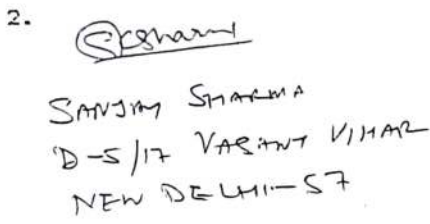 2.
SANJAY SHARMA
D-5/17 VASANT VIHAR
NEW DELHI-57